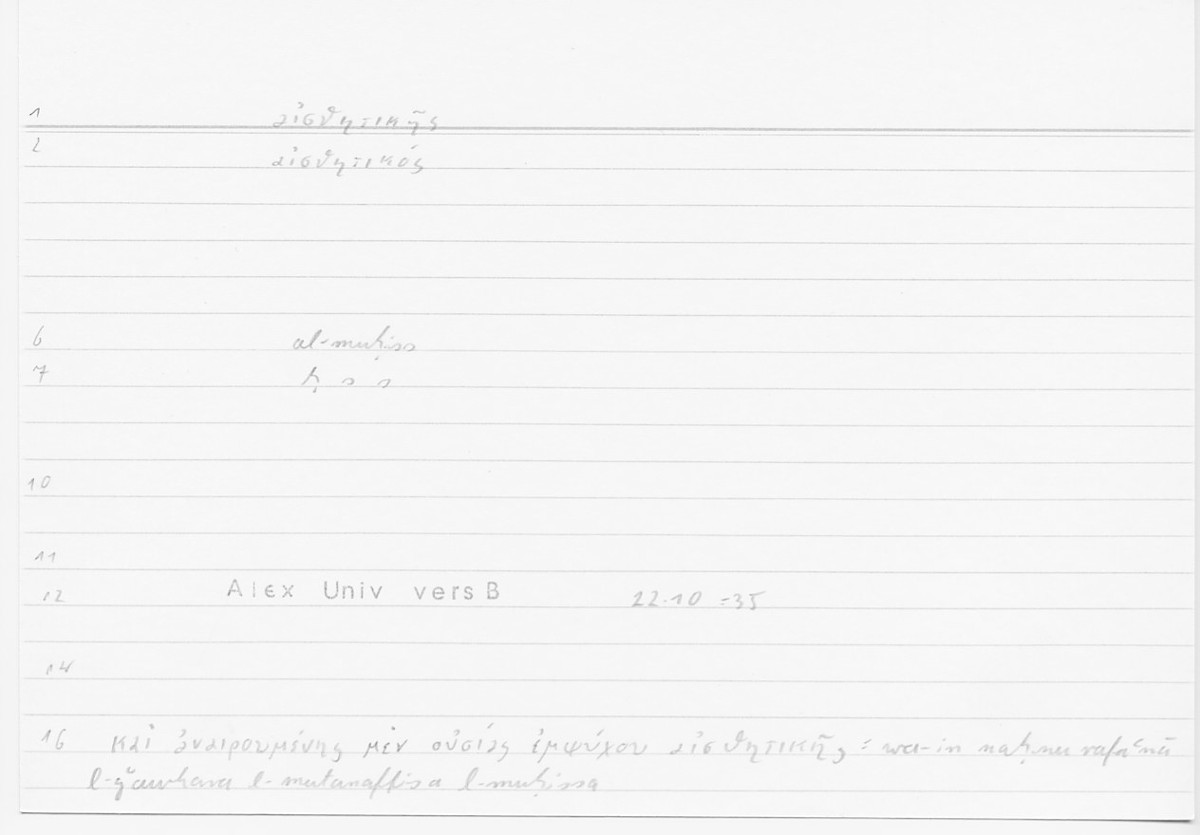 1 αἰσθητικῆς
2 αἰσθητικός
6 al-muḥiss
7 ḥ s s
10
11
12 Alex Univ vers B 22.10 =35
14
16 καὶ ἀναιρουμένης μὲν οὐσίας ἐμψύχου αἰσθητικῆς = wa-in naḥnu rafaʿnā
l-ǧawhara l-mutanaffisa l-muḥissa